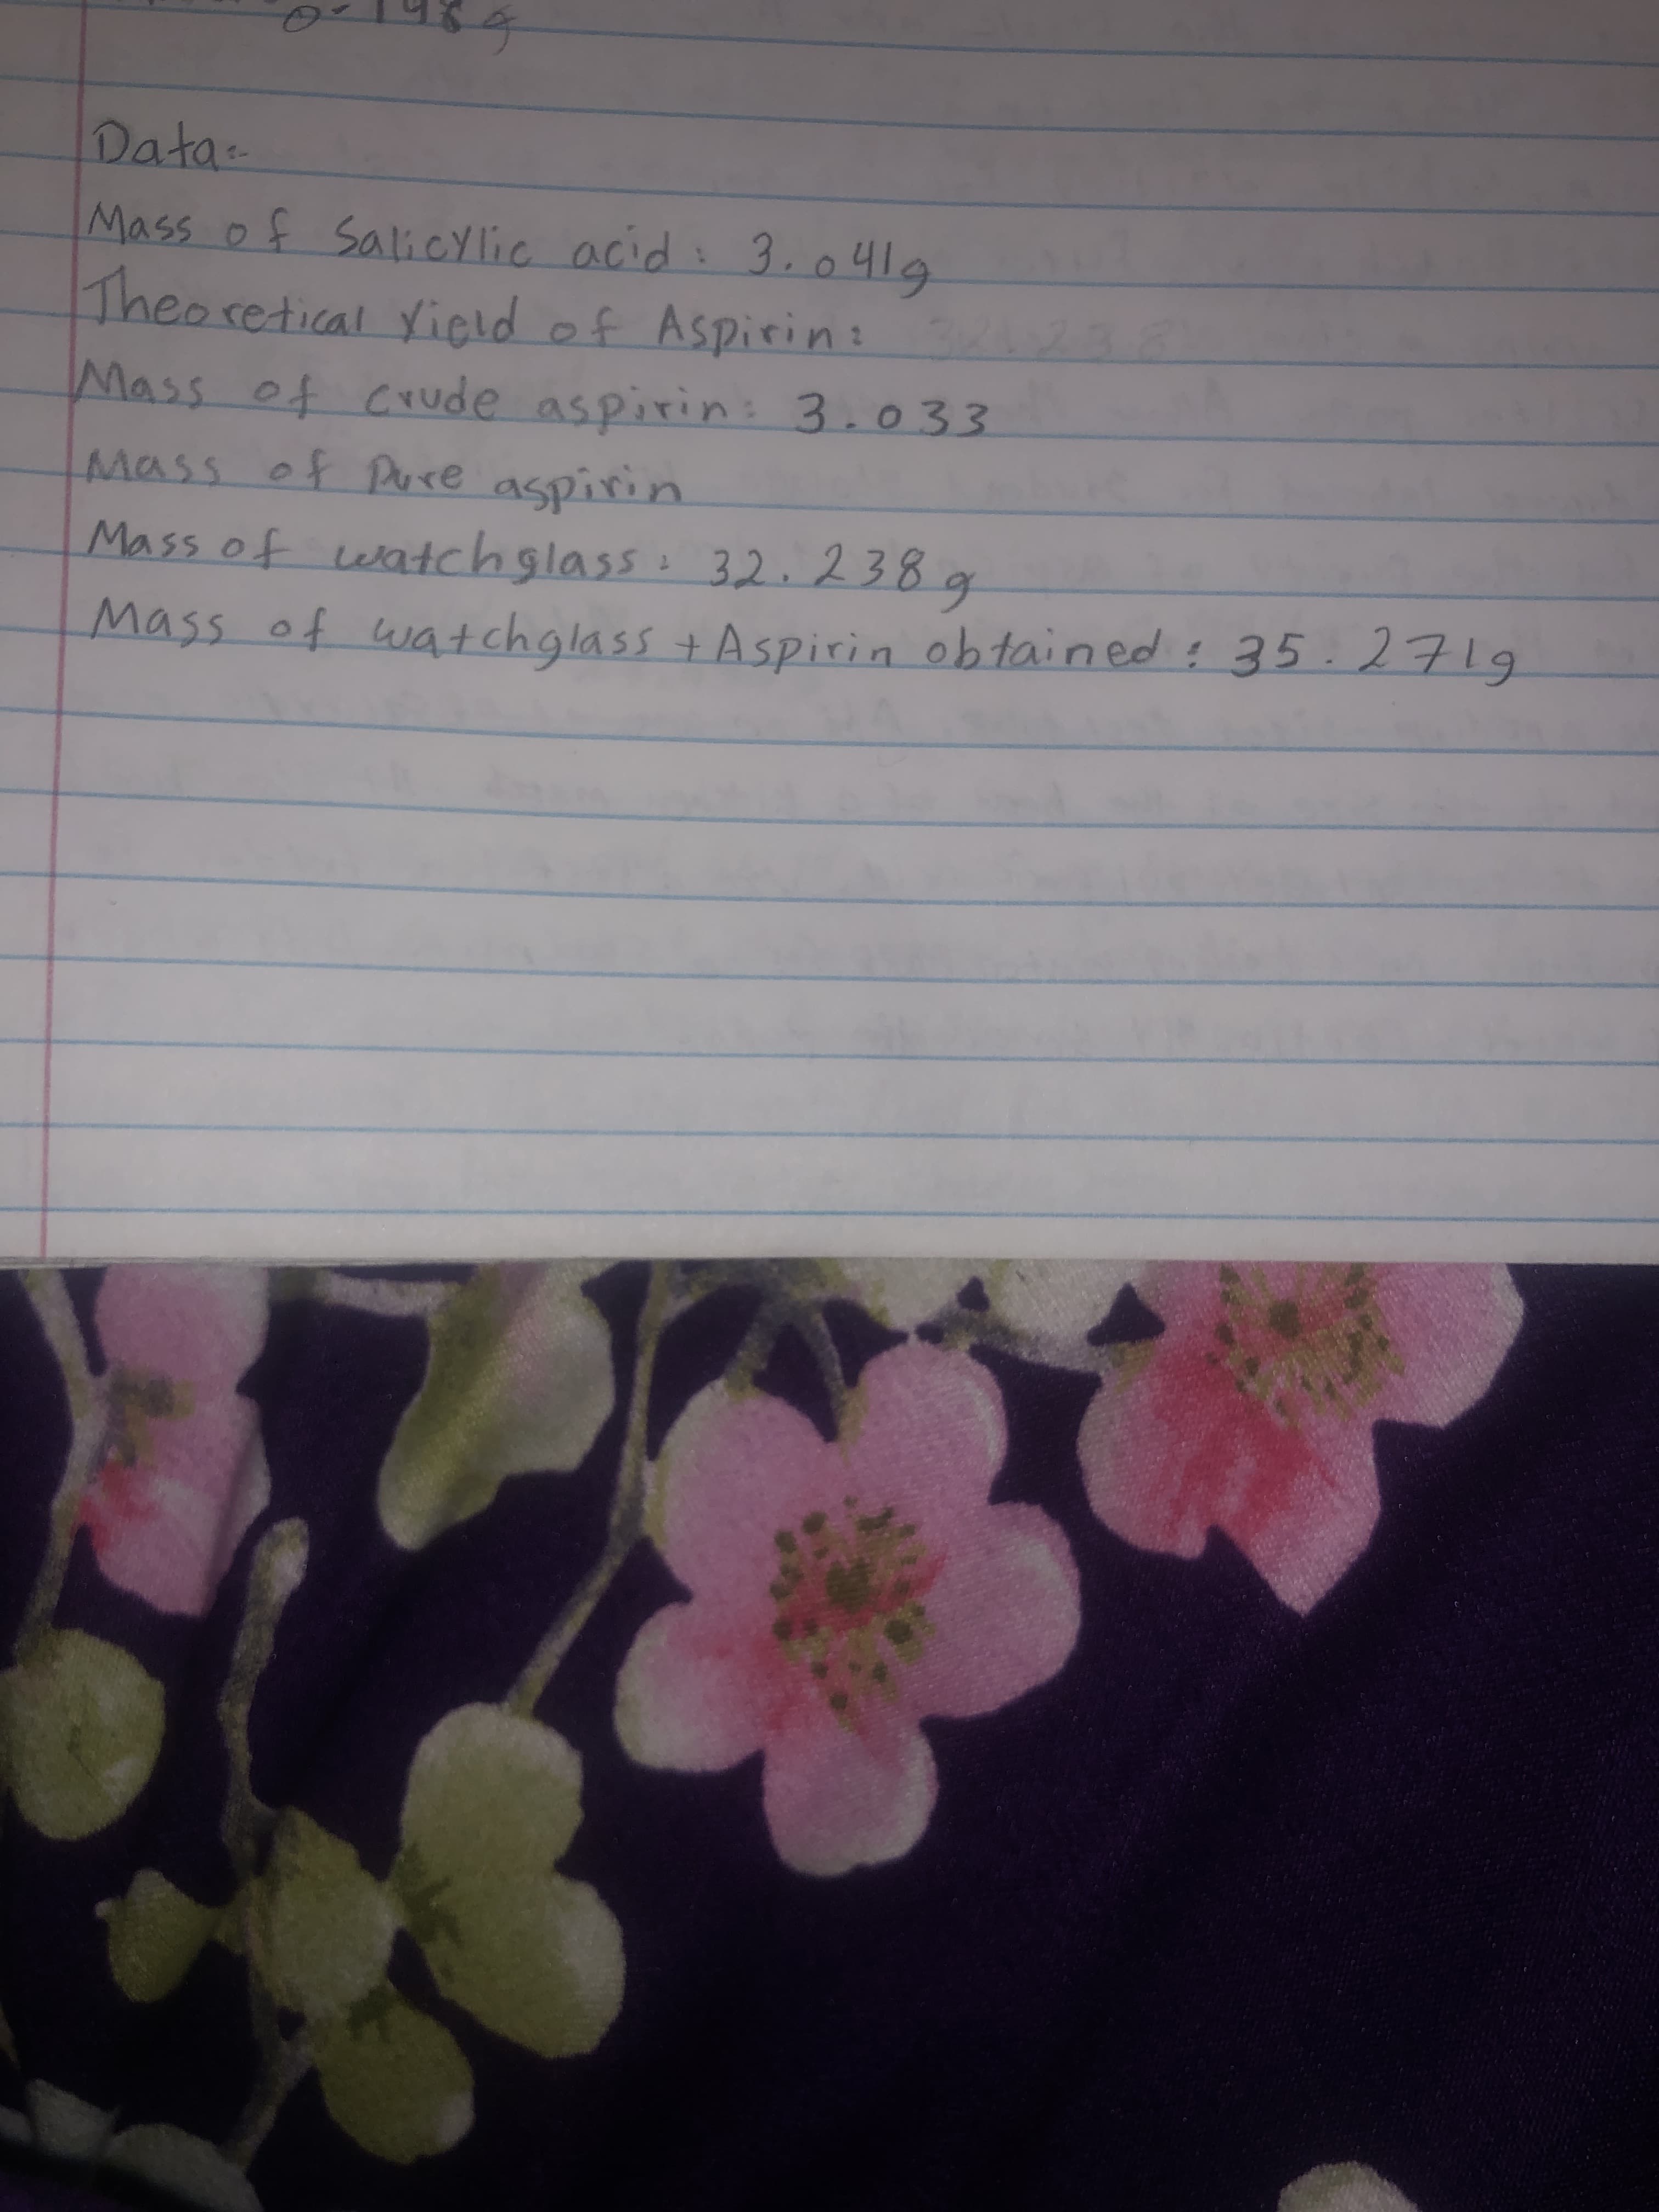 0-198g
Data:-
Mass of Salicylic acid: 3.041g
Theoretical Yield of Aspirin:
Mass of crude aspirin: 3.033
Mass of Pure aspirin
Mass of watchglass: 32.238g
Mass of watchglass + Aspirin obtained: 35.271g